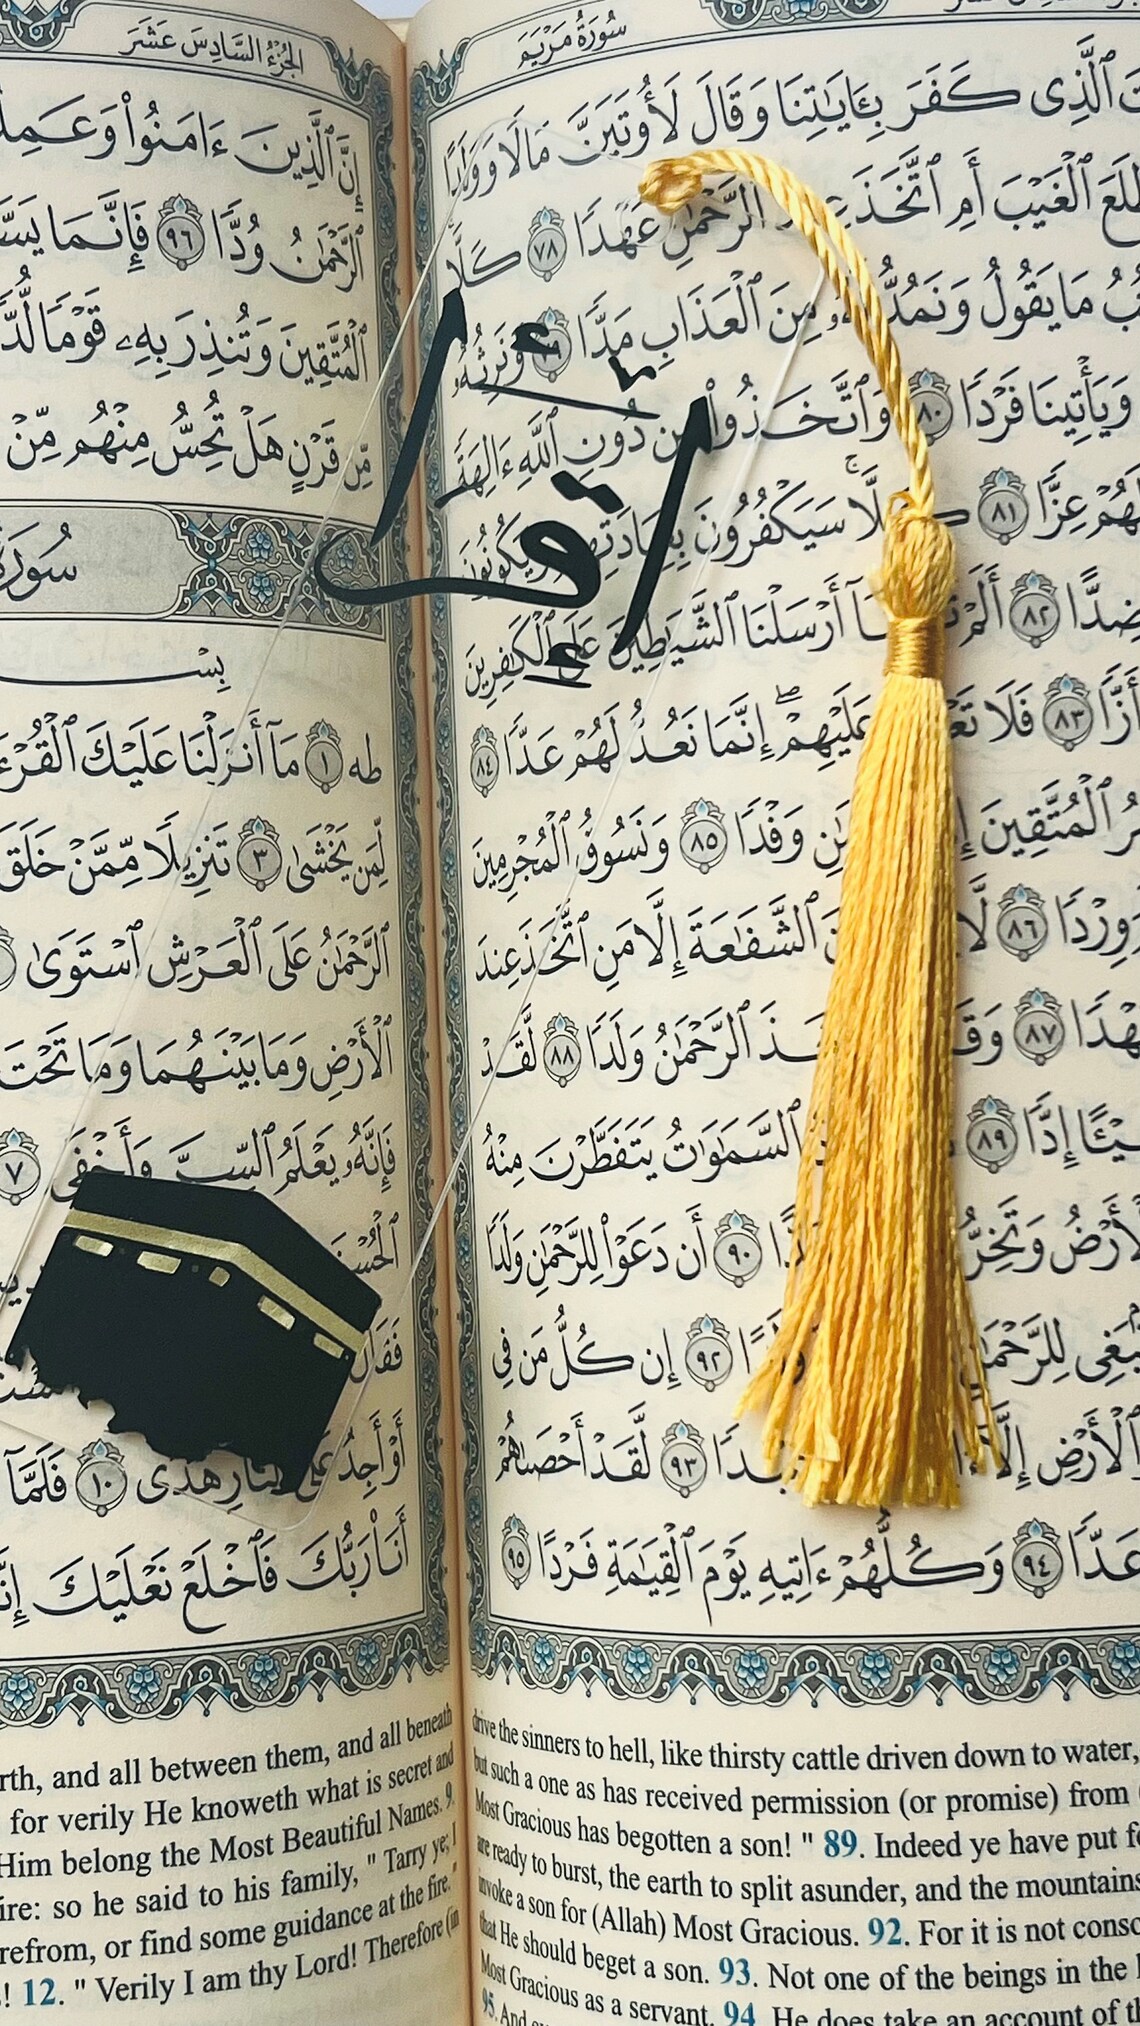 سُورَةُ مَرْيَمَ
ٱلَّذِى كَفَرَ بِـَٔايَـٰتِنَا وَقَالَ لَأُوتَيَنَّ مَالًا وَوَلَدًا
ٱلْغَيْبَ أَمِ ٱتَّخَذَ ٱلرَّحْمَـٰنِ عَهْدًا ٧٨ كَلَّا
مَا يَقُولُ وَنَمُدُّ لَهُۥ مِنَ ٱلْعَذَابِ مَدًّا ٧٩ وَنَرِثُهُۥ
وَيَأْتِينَا فَرْدًا ٨٠ وَٱتَّخَذُوا۟ مِن دُونِ ٱللَّهِ ءَالِهَةً
لَهُمْ عِزًّا ٨١ كَلَّا سَيَكْفُرُونَ بِعِبَادَتِهِمْ وَيَكُونُونَ
ضِدًّا ٨٢ أَلَمْ تَرَ أَنَّآ أَرْسَلْنَا ٱلشَّيَـٰطِينَ عَلَى ٱلْكَـٰفِرِينَ
أَزًّا ٨٣ فَلَا عَلَيْهِمْ ۖ إِنَّمَا نَعُدُّ لَهُمْ عَدًّا ٨٤
ٱلْمُتَّقِينَ وَفْدًا ٨٥ وَنَسُوقُ ٱلْمُجْرِمِينَ
وِرْدًا ٨٦ ٱلشَّفَـٰعَةَ إِلَّا مَنِ ٱتَّخَذَ عِندَ
٨٧ ٱلرَّحْمَـٰنُ وَلَدًا ٨٨ لَّقَدْ
شَيْـًٔا إِدًّا ٨٩ ٱلسَّمَـٰوَٰتُ يَتَفَطَّرْنَ مِنْهُ
ٱلْأَرْضُ وَتَخِرُّ ٩٠ أَن دَعَوْا۟ لِلرَّحْمَـٰنِ وَلَدًا
لِلرَّحْمَـٰنِ ٩٢ إِن كُلُّ مَن فِى
ٱلْأَرْضِ إِلَّآ ٩٣ لَّقَدْ أَحْصَىٰهُمْ
عَدًّا ٩٤ وَكُلُّهُمْ ءَاتِيهِ يَوْمَ ٱلْقِيَـٰمَةِ فَرْدًا ٩٥
drive the sinners to hell, like thirsty cattle driven down to water,
but such a one as has received permission (or promise) from
Most Gracious has begotten a son! " 89. Indeed ye have put
are ready to burst, the earth to split asunder, and the mountains
invoke a son for (Allah) Most Gracious. 92. For it is not
that He should beget a son. 93. Not one of the beings in the
Most Gracious as a servant. 94. He does take an account of
95. And
الجُزْءُ السَّادِسَ عَشَرَ
إِنَّ ٱلَّذِينَ ءَامَنُوا۟ وَعَمِلُوا۟
ٱلرَّحْمَـٰنُ وُدًّا ٩٦ فَإِنَّمَا
ٱلْمُتَّقِينَ وَتُنذِرَ بِهِۦ قَوْمًا لُّدًّا
مِّن قَرْنٍ هَلْ تُحِسُّ مِنْهُم مِّنْ
سُورَةُ
طه ١ مَآ أَنزَلْنَا عَلَيْكَ ٱلْقُرْءَانَ
لِّمَن يَخْشَىٰ ٣ تَنزِيلًا مِّمَّنْ خَلَقَ
ٱلرَّحْمَـٰنُ عَلَى ٱلْعَرْشِ ٱسْتَوَىٰ
ٱلْأَرْضِ وَمَا بَيْنَهُمَا وَمَا تَحْتَ
فَإِنَّهُۥ يَعْلَمُ ٱلسِّرَّ وَأَخْفَى ٧
أَوْ أَجِدُ عَلَى ٱلنَّارِ هُدًى ١٠ فَلَمَّآ
أَنَا۠ رَبُّكَ فَٱخْلَعْ نَعْلَيْكَ ۖ
and all between them, and all beneath
for verily He knoweth what is secret and
Him belong the Most Beautiful Names. 9.
so he said to his family, " Tarry ye; I
or find some guidance at the fire."
12. " Verily I am thy Lord! Therefore (in
اقرأ